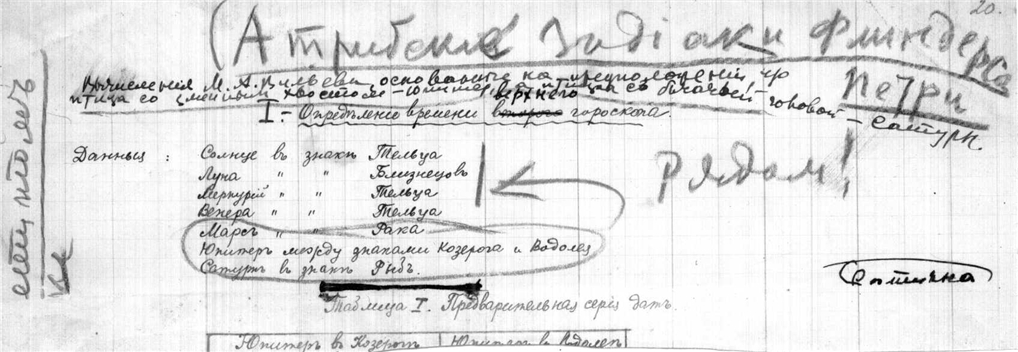 20.
(Атрибскіе Зодіаки Флиндерса Петри
Вычисленія М. А. Вильева, основанныя на предположеніи, что
птица со змеинымъ хвостомъ – Юпитеръ, птица съ бычачьей головой – Сатурн.
верхнего
I.– Опредѣленіе времени второго гороскопа.
Данныя : Солнце въ знакѣ Тельца
Луна " " Близнецовъ
Меркурій " " Тельца
Венера " " Тельца
Рядом!
Марсъ " " Рака
Юпитеръ между знаками Козерога и Водолея
Сатурнъ въ знакѣ Рыбъ.
Таблица I. Предварительная серія датъ.
Юпитеръ въ Козерогѣ | Юпитеръ въ Водолеѣ